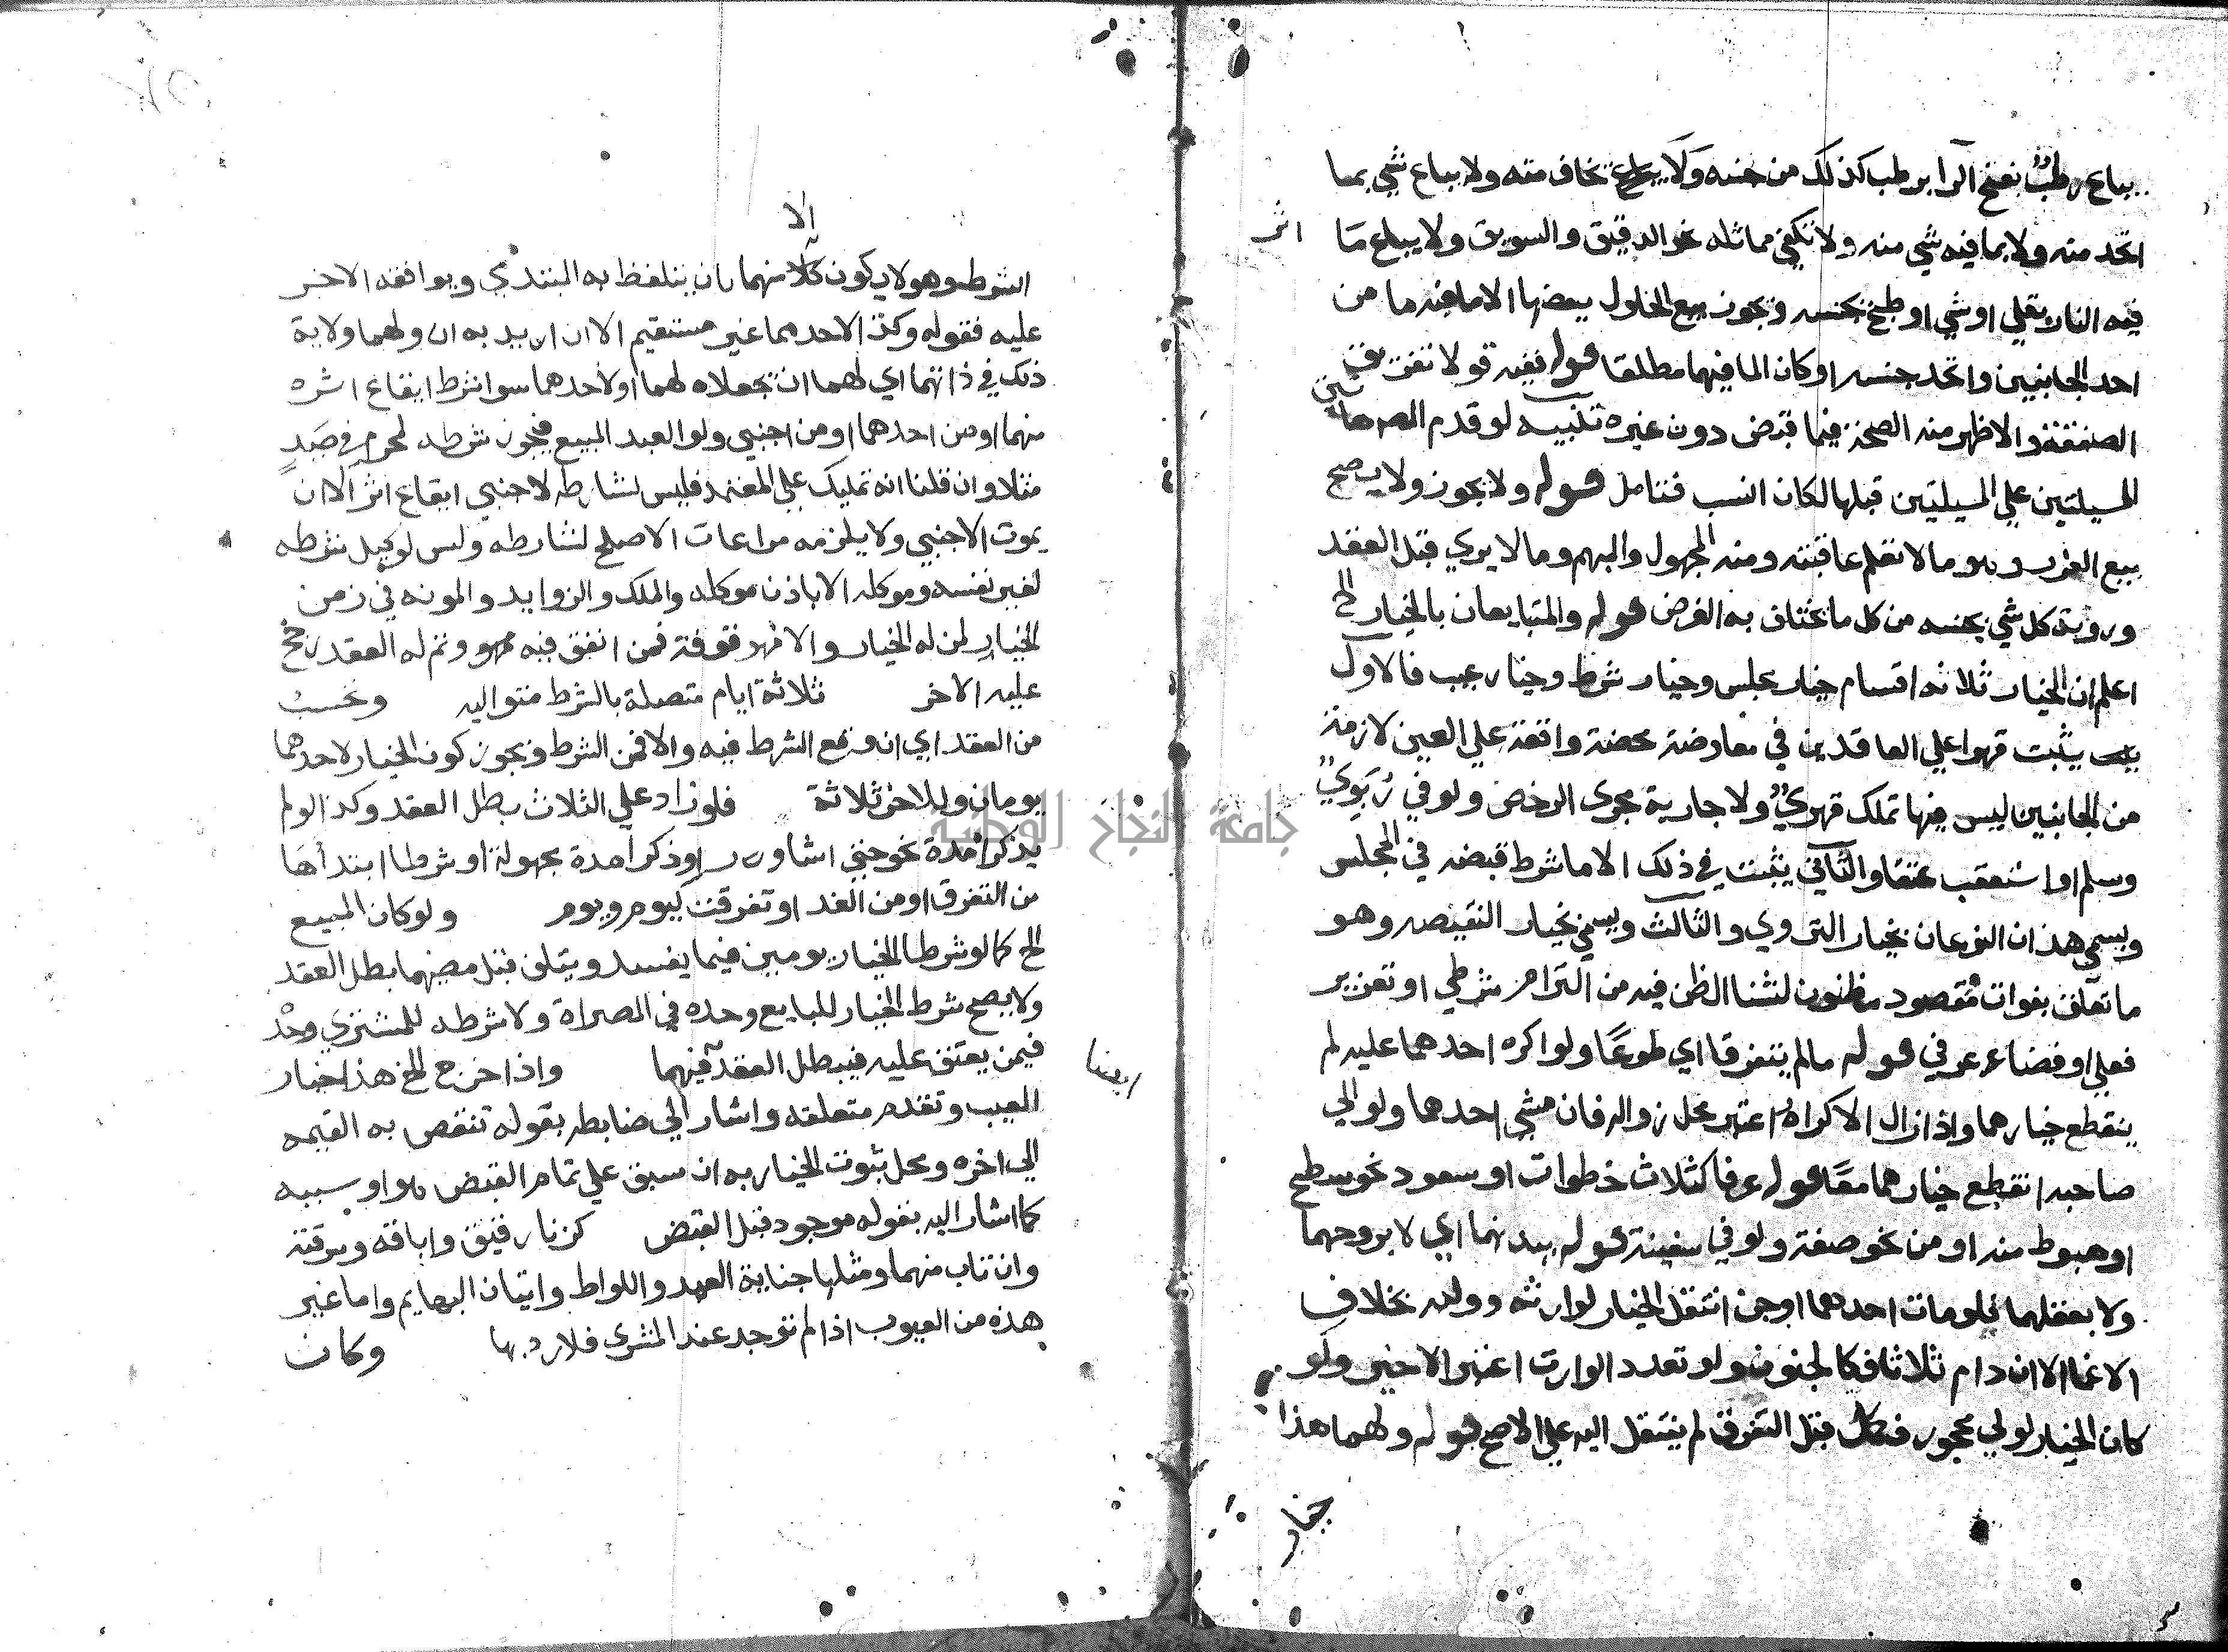 يباع رطب بفتح الرا برطب كذلك من جنسه ولا بجاف منه ولا يباع شي بما
اتخد منه ولا بما فيه شي منه ولا تكفي مماثله نحو الدقيق والسويق ولا يباع ما
اثر
فيه النار بقلي او شي او طبخ بجنسه ويجوز بيع الخلول ببعضها الا ما فيه ما من
احد الجانبين واتحد جنسه او كان الما فيهما مطلقا قوله ففيه قولا تفريق
الصفقة والاظهر منه الصحة فيما قبض دون غيره تنبيه لو قدم المص هاتين
المسيلتين علي المسيلتين قبلها لكان انسب فتامل قوله ولا يجوز ولا يصح
بيع الغرر وهو ما لا تعلم عاقبته ومنه المجهول والمبهم وما لا يري قبل العقد
وروية كل شي بحسبه من كل ما يختلف به الغرض قوله والمتبايعان بالخيار الخ
اعلم ان الخيار ثلاثه اقسام خيار مجلس وخيار شرط وخيار عيب فالاول
يثبت قهرا علي العاقدين في معاوضة محضة واقعة علي العين لازمة
من الجانبين ليس فيها تملك قهري ولا جارية مجري الرخص ولو في ربوي
وسلم او استعقب عتقا والثاني يثبت في ذلك الا ما شرط قبضه في المجلس
ويسمي هذان النوعان بخيار التروي والثالث ويسمي بخيار النقيصه وهو
ما تعلق بفوات مقصود مظنون لنشا الظن فيه من التزام شرطي او تغرير
فعلي او قضا عرعرفي قوله ما لم يتفرقا اي طوعا ولو اكره احدهما عليه لم
ينقطع خيارهما واذا زال الاكراه اعتبر محل زواله فان مشي احدهما ولو الي
صاحبه انقطع خيارهما معا قوله عرفا كثلاث خطوات او سعود نحو سطح
او هبوط منه او من نحو صفة ولو في سفينة قوله ببدنهما اي لا بروحهما
ولا بعقلهما فلو مات احدهما او جن انتقل الخيار لوارثه وولده بخلاف
الاغما الا ان دام ثلاثا فكالجنون ولو تعدد الوارث اعتبر الاخير ولو
كان الخيار لولي محجور فكمل قبل التفرق لم ينتقل اليه علي الاصح قوله ولهما هذا
خيار
الا
الشرط وهو لا يكون كلا منهما بان يتلفظ به المبتدي ويوافقه الاخر
عليه فقوله وكذا لاحدهما غير مستقيم الا ان اريد به ان ولهما ولاية
ذلك في ذاتهما اي لهما ان يجعلاه لهما او لاحدهما سوا شرط ايقاع اثره
منهما او من احدهما او من اجنبي ولو العبد المبيع فيجوز شرطه لمحرم في صيد
مثلا وان قلنا انه تمليك علي المعتمد فليس لشارطه لاجنبي ايقاع اثر الا ان
يموت الاجنبي ولا يلزمه مراعات الاصلح لشارطه وليس لوكيل شرطه
لغير نفسه وموكله الا باذن موكله والملك والزوايد والمونه في زمن
الخيار لمن له الخيار والا فموقوفة فمن انفق فيه مهو وتم له العقد رجع
عليه الاخر ثلاثة ايام متصلة بالشرط متواليه وتحسب
من العقد اي ان وقع الشرط فيه والا فمن الشرط ويجوز كون الخيار لاحدهما
يومان وللاخر ثلاثة فلو زاد علي الثلاث بطل العقد وكذا لو لم
يذكرا مدة نحو حتي اشاور او ذكرا مدة مجهولة او شرطا ابتدأها
من التفرق او من الغد او تفرقت كيوم ويوم ولو كان المبيع
الخ كما لو شرطا الخيار يومين فيما يفسد ويتلف قبل مضيهما بطل العقد
ولا يصح شرط الخيار للبايع وحده في المصراة ولا شرطه للمشتري وحد
فيمن يعتق عليه فيبطل العقد فيهما واذا خرج الخ هذا خيار
ايضا
العيب وتقدم متعلقه واشار الي ضابطه بقوله تنقص به القيمه
الي اخره ومحل ثبوت الخيار به ان سبق علي تمام القبض هو او سببه
كما اشار اليه بقوله موجود قبل القبض كزنا رقيق واباقه وسرقته
وان تاب منهما ومثلها جناية العمد واللواط واتيان البهايم واما غير
هذه من العيوب اذا لم توجد عند المشتري فلا رد بها وكان
جامعة النجاح الوطنية